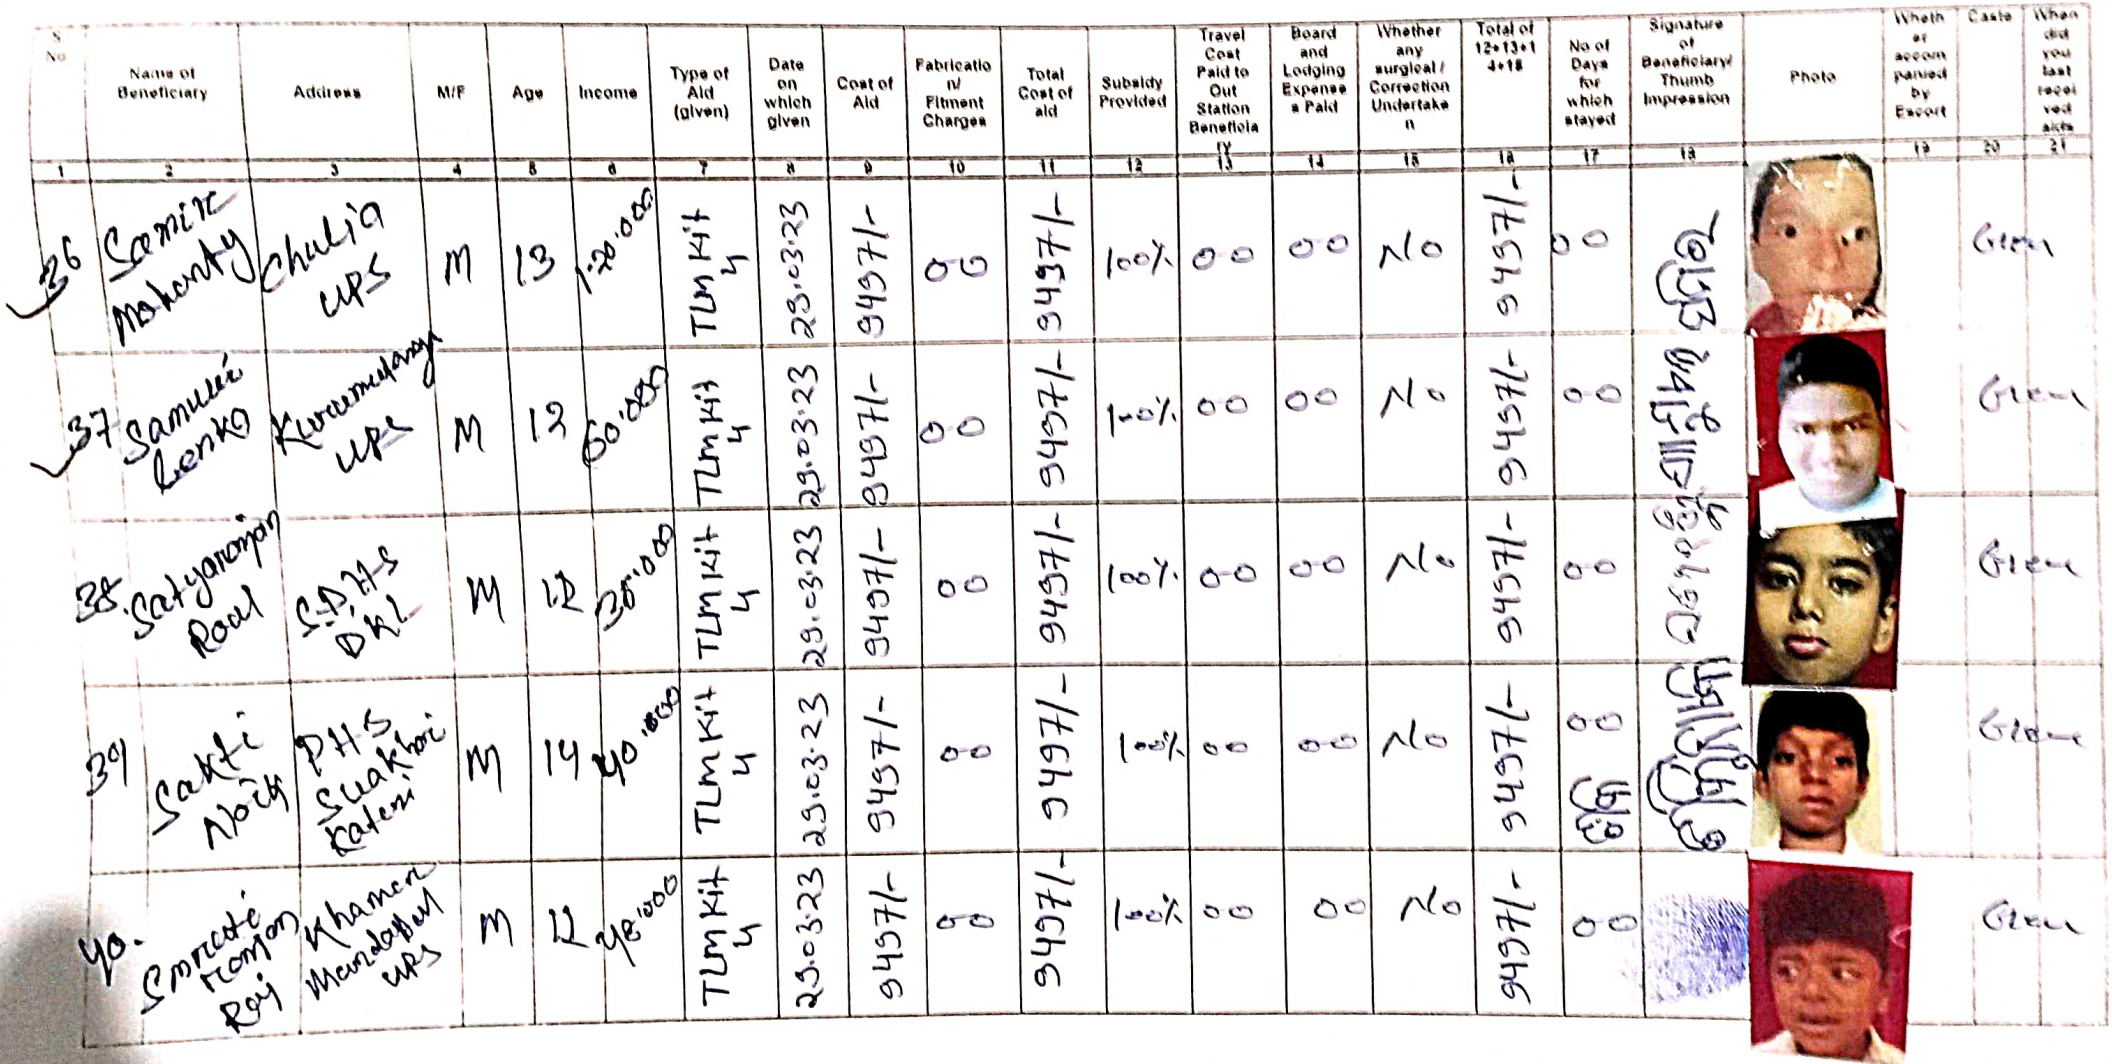 S No
Name of Beneficiary
Address
M/F
Age
Income
Type of Aid (given)
Date on which given
Cost of Aid
Fabricatio n/ Fitment Charges
Total Cost of aid
Subsidy Provided
Travel Cost Paid to Out Station Beneficia ry
Board and Lodging Expense s Paid
Whether any surgical / Correction Undertake n
Total of 12+13+1 4+15
No of Days for which stayed
Signature of Beneficiary/ Thumb Impression
Photo
Wheth er accom panied by Escort
Caste
When did you last recei ved aids
1 2 3 4 5 6 7 8 9 10 11 12 13 14 15 16 17 18 19 20 21
36 Samir Mohanty Chulia UPS M 13 1.20.000 TLM Kit 4 29.03.23 9497/- 00 9497/- 100% 00 00 No 9497/- 00
37 Lenka UPS M 12 60.000 TLM Kit 4 29.03.23 9497/- 00 9497/- 100% 00 00 No 9497/- 00
38. Satyaranjan Roul S.D.H.S DKL M 12 TLM Kit 4 29.03.23 9497/- 00 9497/- 100% 00 00 No 9497/- 00
39 Sakti Naik P.H.S M 14 40.000 TLM Kit 4 29.03.23 9497/- 00 9497/- 100% 00 00 No 9497/- 00
40. Roy UPS M 12 TLM Kit 4 29.03.23 9497/- 00 9497/- 100% 00 00 No 9497/- 00